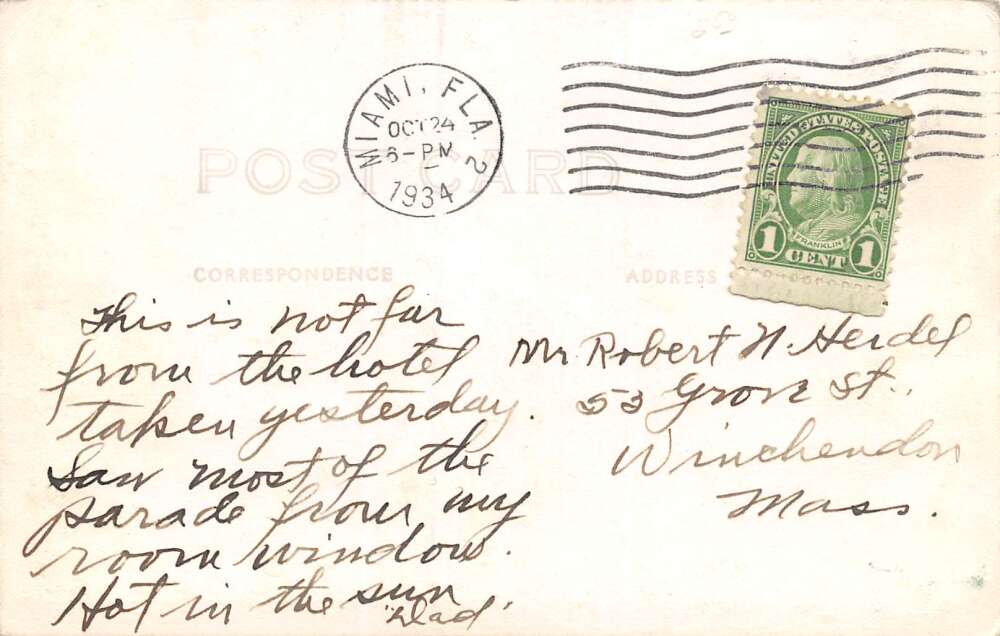 MIAMI, FLA. 2
OCT 24
6-PM
1934
UNITED STATES POSTAGE
FRANKLIN
1 CENT 1
POST CARD
CORRESPONDENCE
ADDRESS
This is not far
from the hotel
taken yesterday.
Saw most of the
parade from my
room window.
Hot in the sun
"Dad"
Mr Robert N. Herdel
53 Grove St.,
Winchendon
Mass.